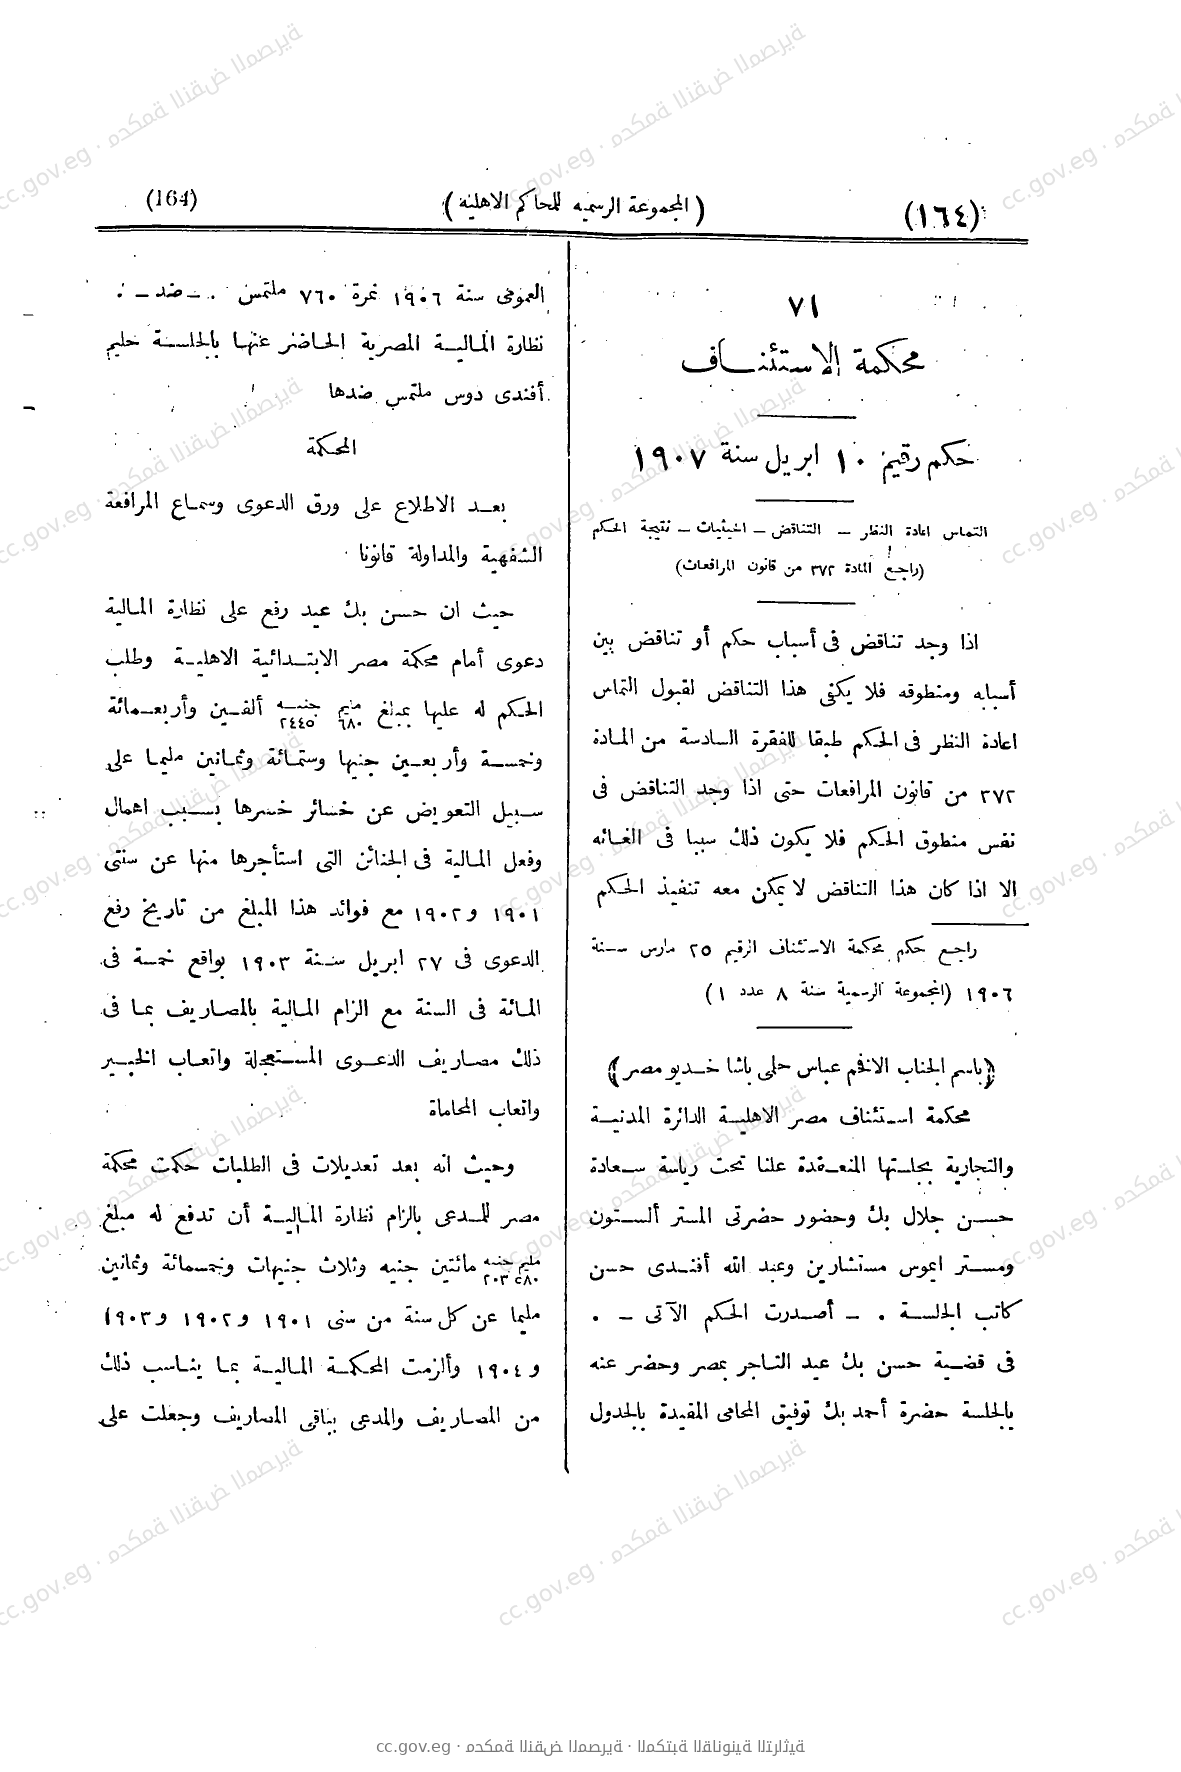 (١٦٤) (المجموعة الرسمية للمحاكم الاهلية) (164)
٧١
محكمة الاستئناف
حكم رقيم ١٠ ابريل سنة ١٩٠٧
التماس اعادة النظر – التناقض – الحيثيات – نتيجة الحكم
(راجع المادة ٣٧٢ من قانون المرافعات)
اذا وجد تناقض فى أسباب حكم أو تناقض بين
أسبابه ومنطوقه فلا يكفى هذا التناقض لقبول التماس
اعادة النظر فى الحكم طبقا للفقرة السادسة من المادة
٣٧٢ من قانون المرافعات حتى اذا وجد التناقض فى
نفس منطوق الحكم فلا يكون ذلك سببا فى الغائه
الا اذا كان هذا التناقض لا يمكن معه تنفيذ الحكم
راجع حكم محكمة الاستئناف الرقيم ٢٥ مارس سنة
١٩٠٦ (المجموعة الرسمية سنة ٨ عدد ١)
(باسم الجناب الافخم عباس حلمى باشا خديو مصر)
محكمة استئناف مصر الاهلية الدائرة المدنية
والتجارية بجلستها المنعقدة علنا تحت رياسة سعادة
حسن جلال بك وحضور حضرتى المستر ألستون
ومستر ايموس مستشارين وعبد الله أفندى حسن
كاتب الجلسة . – أصدرت الحكم الآتى – .
فى قضية حسن بك عيد التاجر بمصر وحضر عنه
بالجلسة حضرة أحمد بك توفيق المحامى المقيدة بالجدول
العمومى سنة ١٩٠٦ نمرة ٧٦٠ ملتمس . – ضد – .
نظارة المالية المصرية الحاضر عنها بالجلسة حليم
أفندى دوس ملتمس ضدها
المحكمة
بعد الاطلاع على ورق الدعوى وسماع المرافعة
الشفهية والمداولة قانونا
حيث ان حسن بك عيد رفع على نظارة المالية
دعوى أمام محكمة مصر الابتدائية الاهلية وطلب
الحكم له عليها بمبلغ مليم ٦٨٠ جنيه ٢٤٤٥ ألفين وأربعمائة
وخمسة وأربعين جنيها وستمائة وثمانين مليما على
سبيل التعويض عن خسائر خسرها بسبب اهمال
وفعل المالية فى الجنائن التى استأجرها منها عن سنتى
١٩٠١ و ١٩٠٢ مع فوائد هذا المبلغ من تاريخ رفع
الدعوى فى ٢٧ ابريل سنة ١٩٠٣ بواقع خمسة فى
المائة فى السنة مع الزام المالية بالمصاريف بما فى
ذلك مصاريف الدعوى المستعجلة واتعاب الخبير
واتعاب المحاماة
وحيث انه بعد تعديلات فى الطلبات حكمت محكمة
مصر للمدعى بالزام نظارة المالية أن تدفع له مبلغ
مليم ٥٨٠ جنيه ٢٠٣ مائتين جنيه وثلاث جنيهات وخمسمائة وثمانين
مليما عن كل سنة من سنى ١٩٠١ و ١٩٠٢ و ١٩٠٣
و ١٩٠٤ وألزمت المحكمة المالية بما يناسب ذلك
من المصاريف والمدعى بباقى المصاريف وجعلت على
cc.gov.eg · محكمة النقض المصرية · المكتبة القانونية التراثية